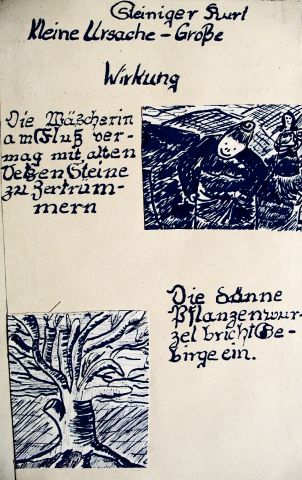 Steiniger Kurt
Kleine Ursache - Große
Wirkung
Die Wäscherin
am Fluß ver-
mag mit alten
Fetzen Steine
zu Zertrüm-
mern
Die dünne
Pflanzenwur-
zel bricht Ge-
birge ein.